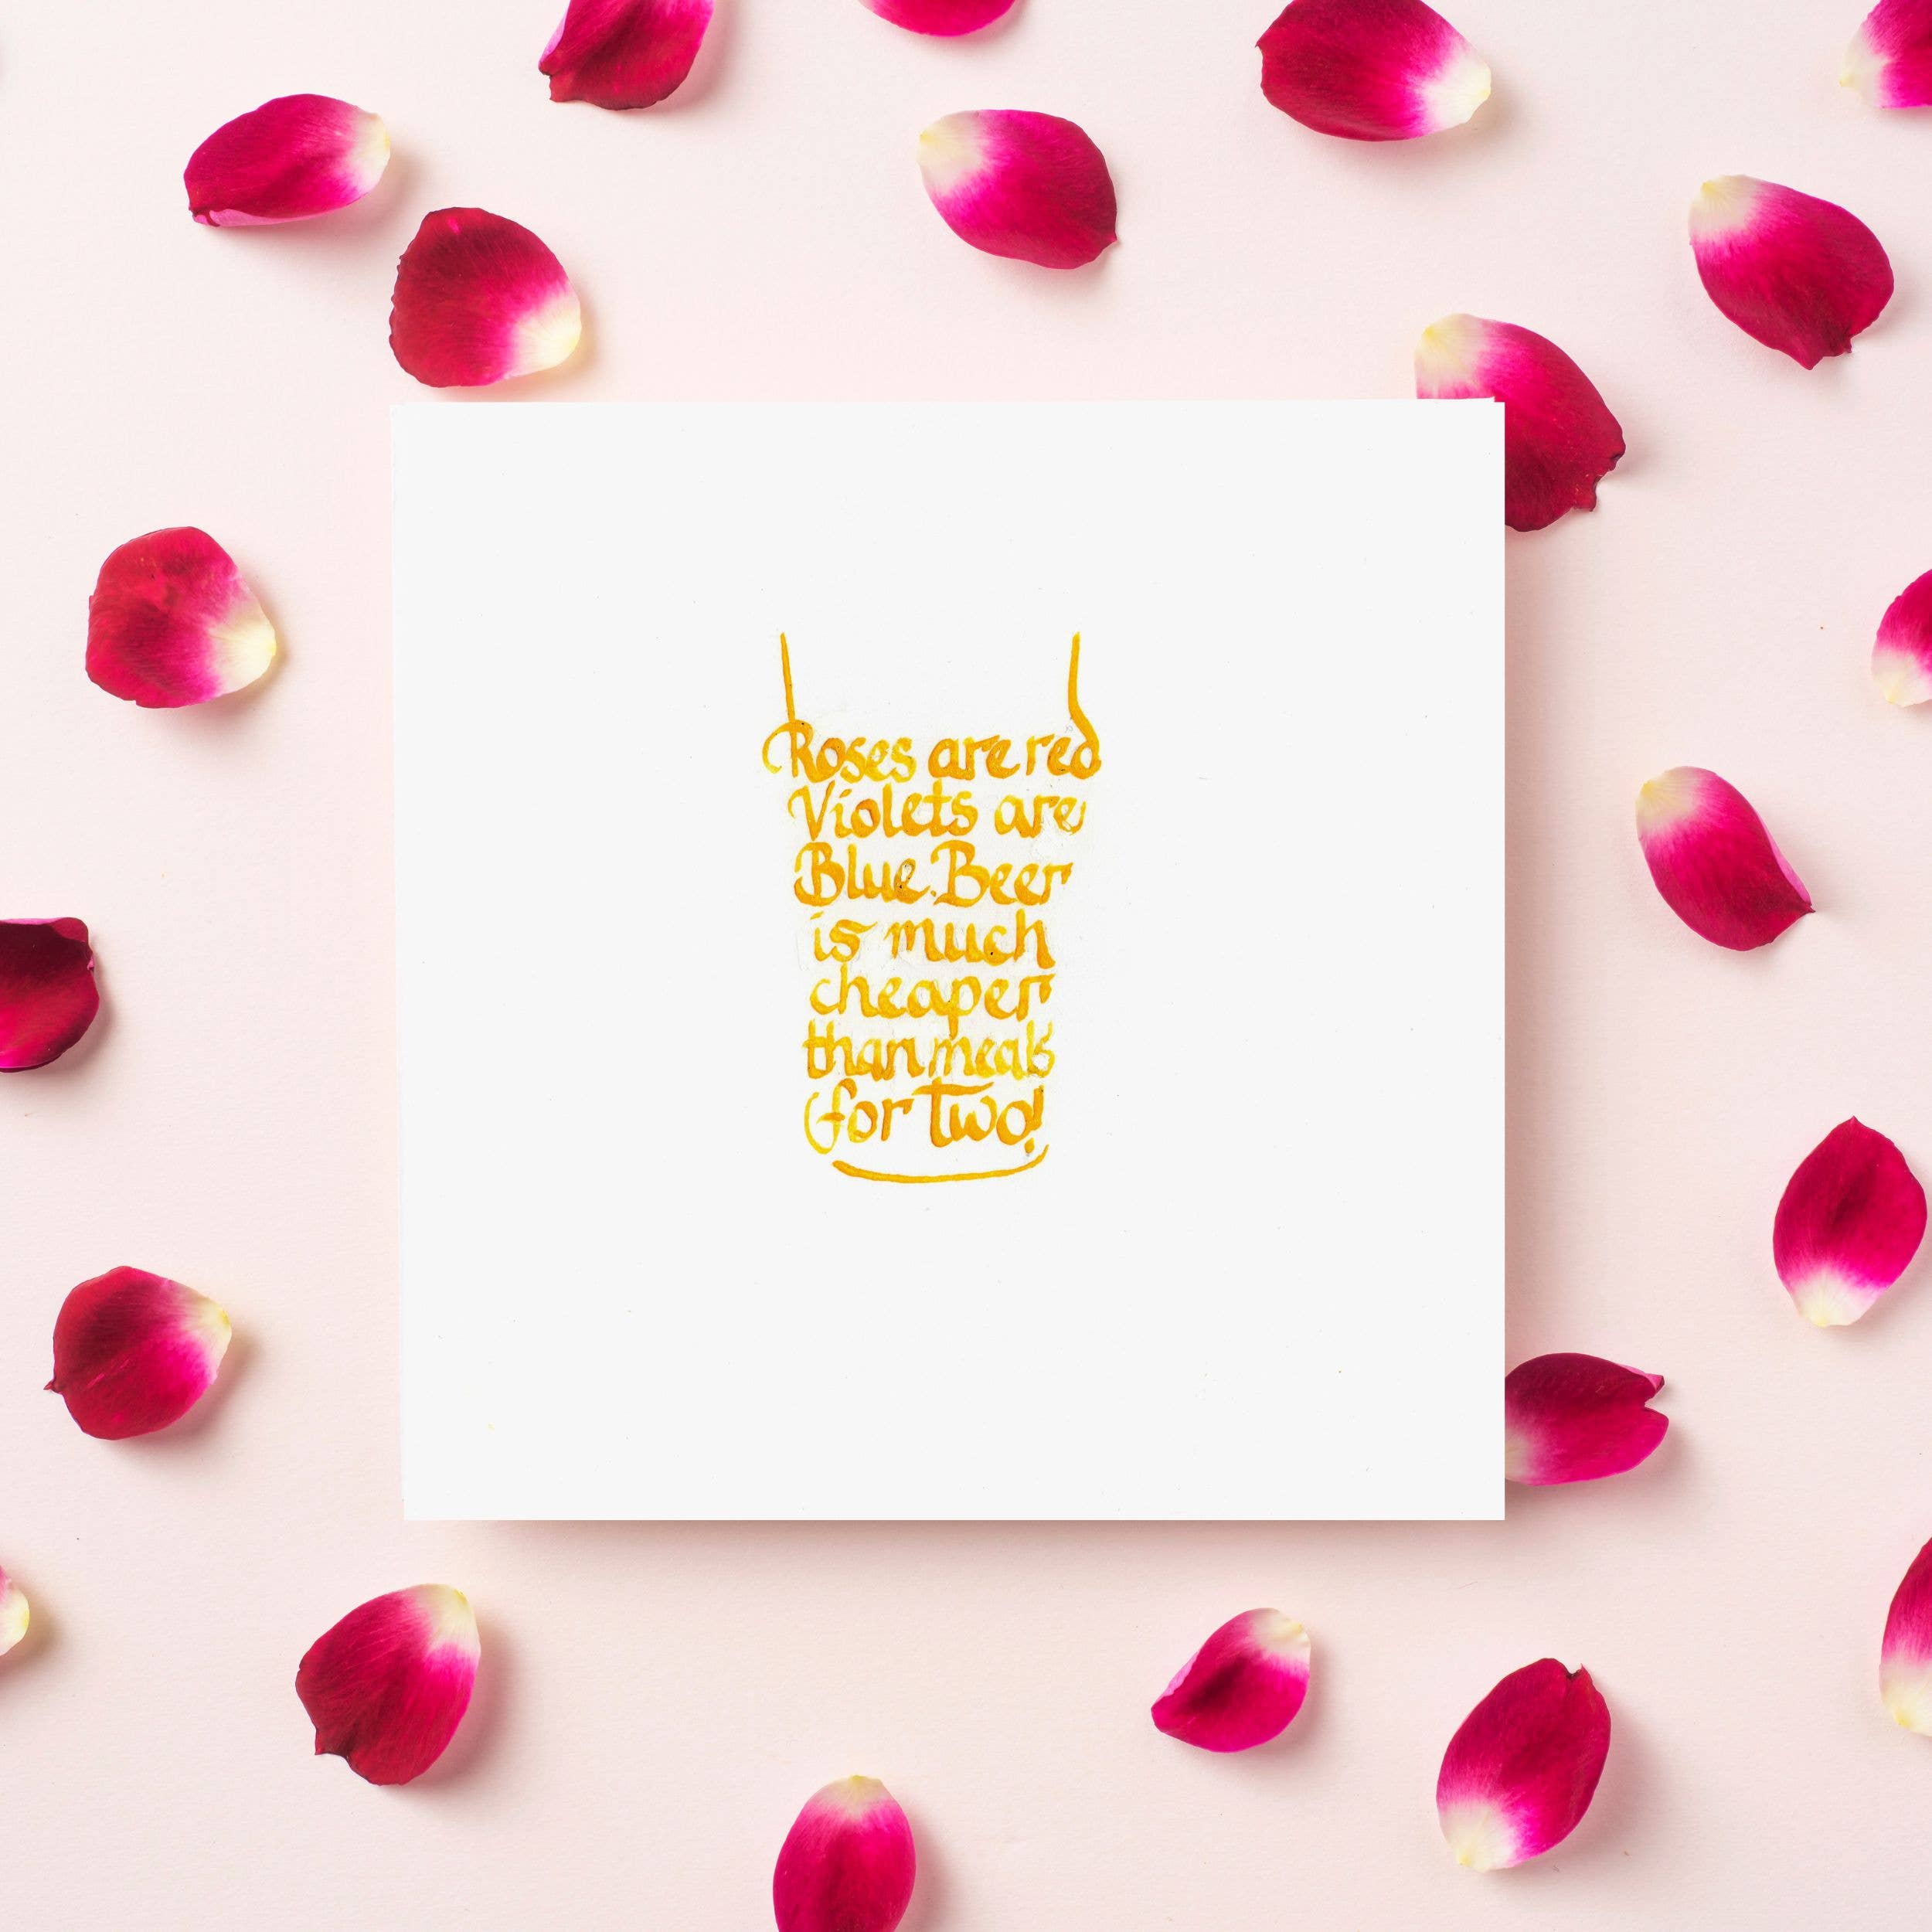 Roses are red
Violets are
Blue. Beer
is much
cheaper
than meals
for Two!